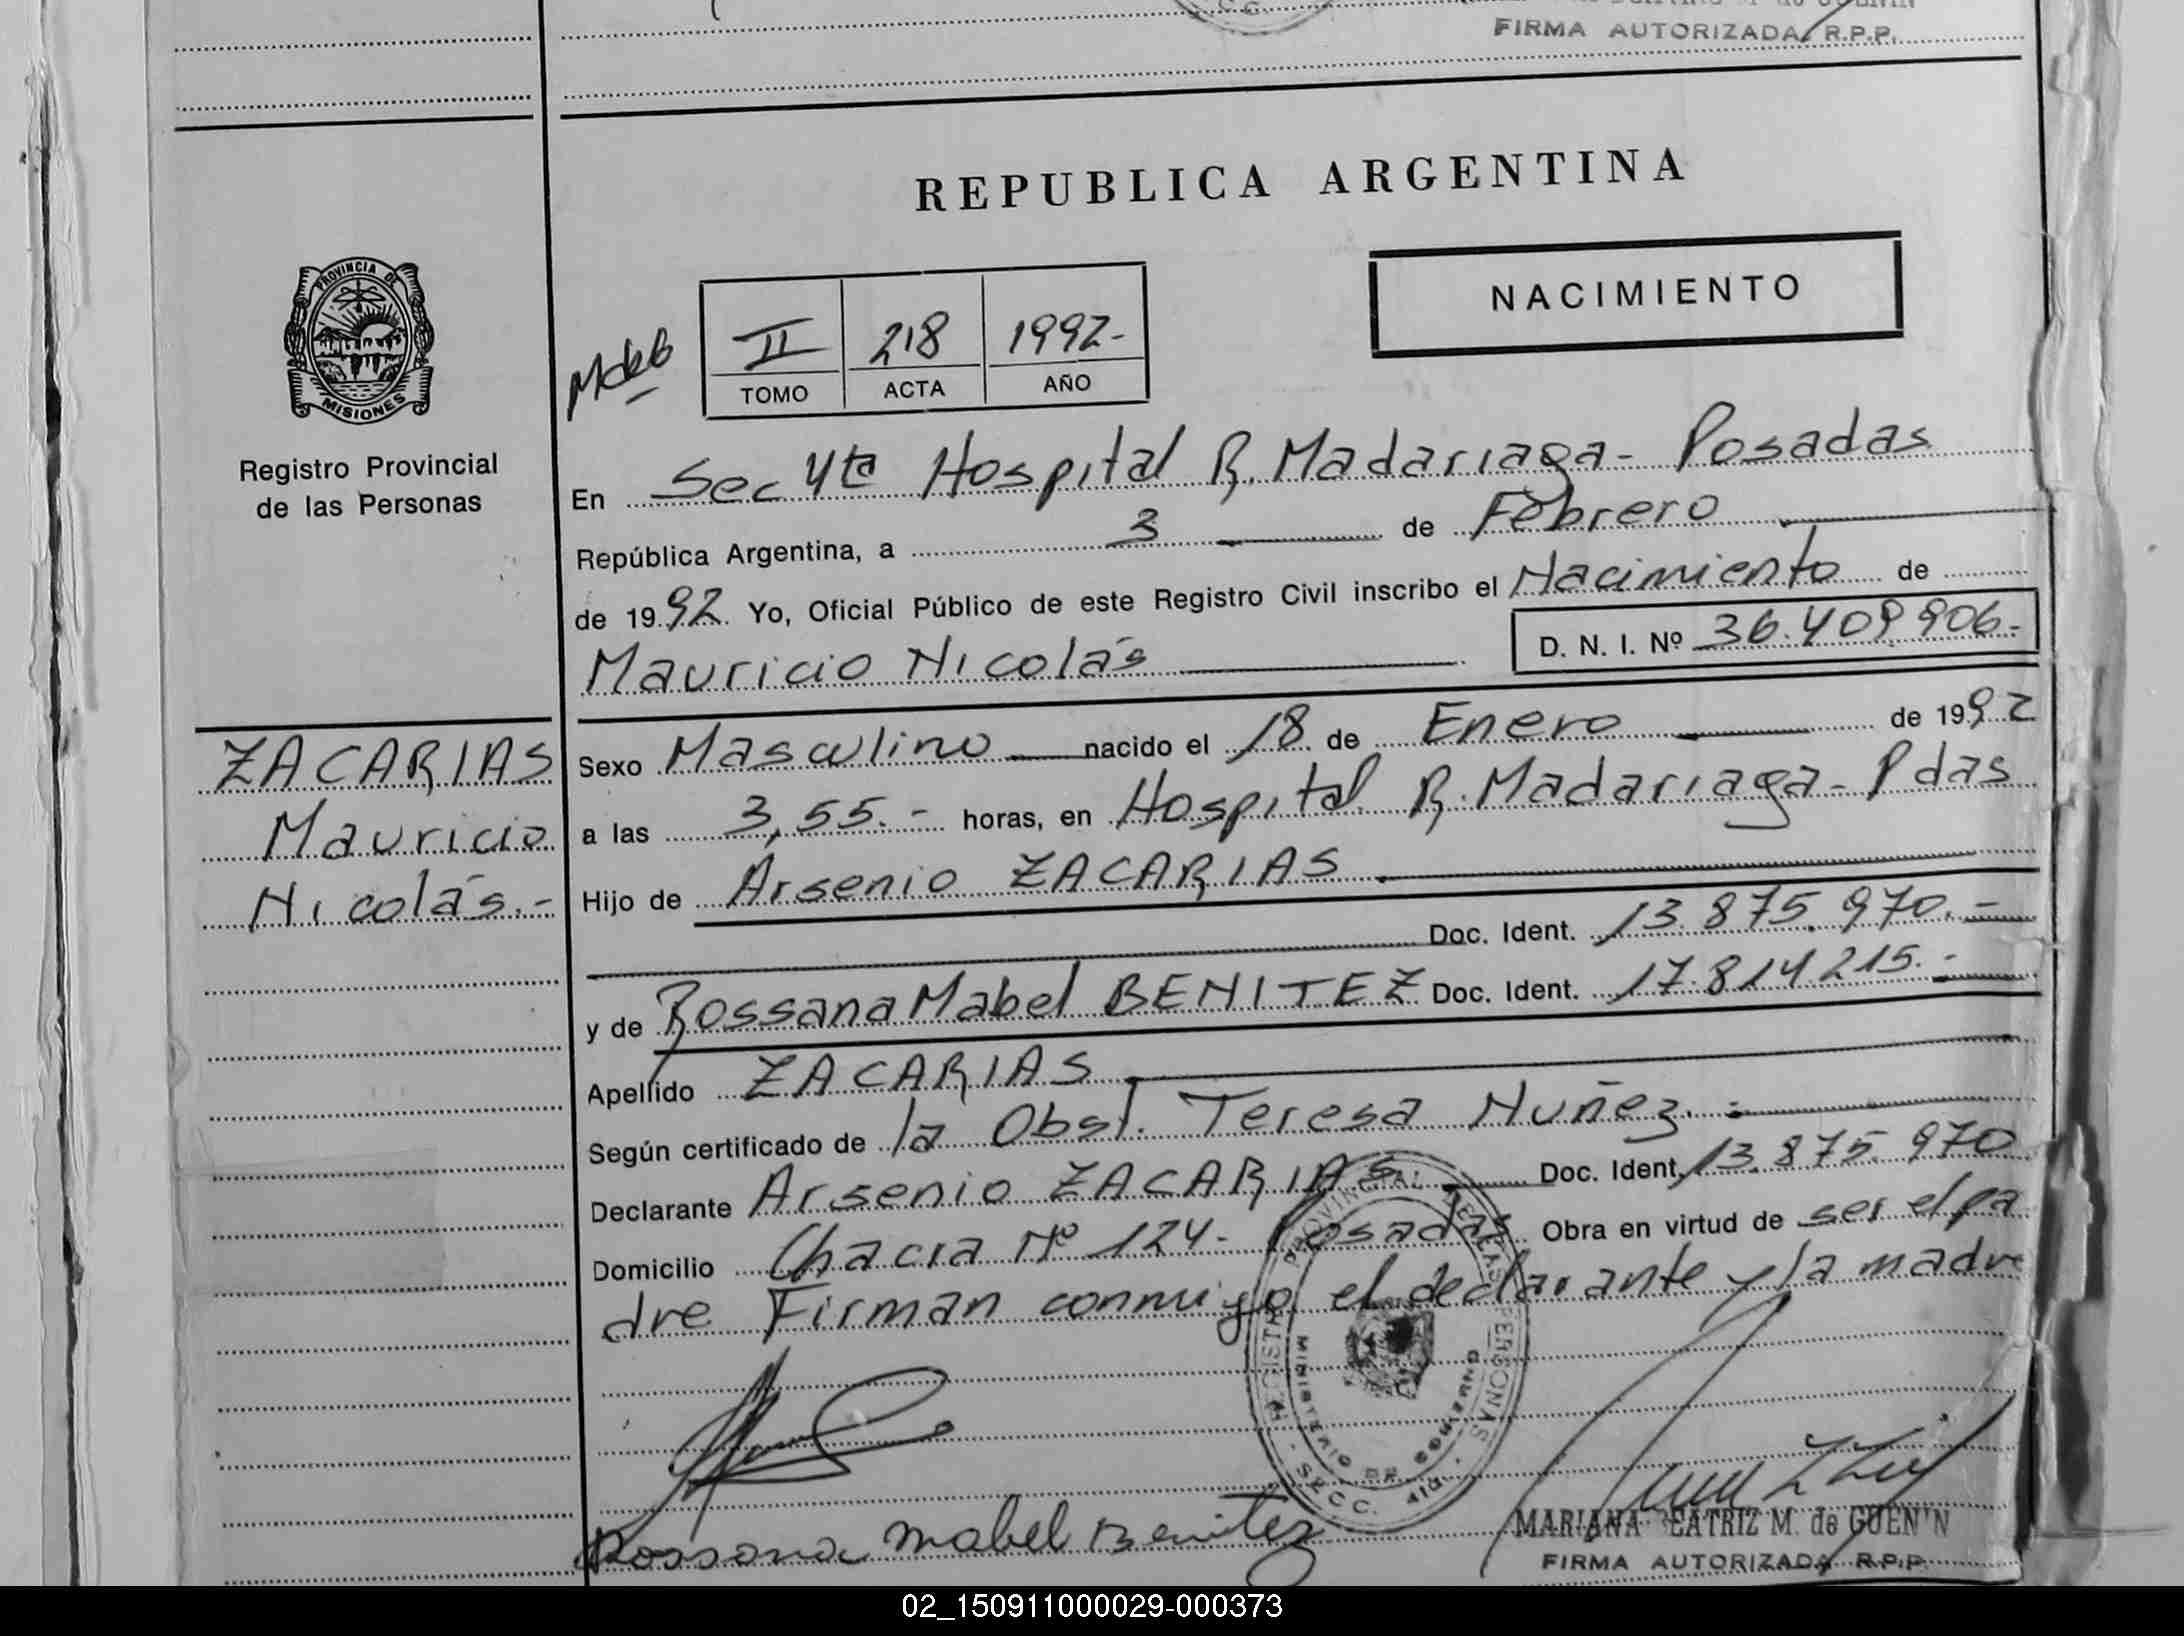 FIRMA AUTORIZADA R.P.P.
REPUBLICA ARGENTINA
NACIMIENTO
PROVINCIA DE
MISIONES
Registro Provincial
de las Personas
II 218 1992-
TOMO ACTA AÑO
En Sec 4ta Hospital R. Madariaga - Posadas
República Argentina, a 3 de Febrero
de 1992. Yo, Oficial Público de este Registro Civil inscribo el Nacimiento de
Mauricio Nicolás D. N. I. Nº 36.409906.-
ZACARIAS
Mauricio
Nicolás.-
Sexo Masculino nacido el 18 de Enero de 1992
a las 3,55.- horas, en Hospital R. Madariaga - Pdas
Hijo de Arsenio ZACARIAS
Doc. Ident. 13.875.970.-
y de Rossana Mabel BENITEZ Doc. Ident. 17.814.215.-
Apellido ZACARIAS
Según certificado de la Obst. Teresa Nuñez.-
Declarante Arsenio ZACARIAS Doc. Ident. 13.875.970
Domicilio Chacra Nº 124- Posadas Obra en virtud de ser el pa
dre Firman conmigo el declarante y la madre
REGISTRO PROVINCIAL DE LAS PERSONAS
MINISTERIO DE GOBIERNO
SECC. 4ta
Rossana Mabel Benitez
MARIANA BEATRIZ M. de GUENIN
FIRMA AUTORIZADA R.P.P.
02_150911000029-000373